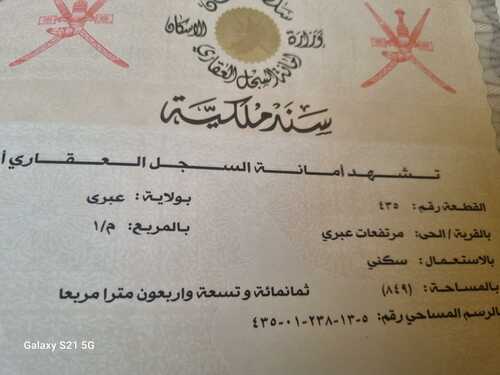 سلطنة عمان
وزارة الاسكان
أمانة السجل العقاري
سند ملكية
تشهد أمانة السجل العقاري أ
القطعة رقم: ٤٣٥
بولاية: عبرى
بالقرية/الحى: مرتفعات عبري
بالمربع: م/١
بالاستعمال: سكني
بالمساحة: (٨٤٩) ثمانمائة وتسعة واربعون مترا مربعا
بالرسم المساحي رقم: ٥-١٣-٢٣٨-٠١-٤٣٥
Galaxy S21 5G